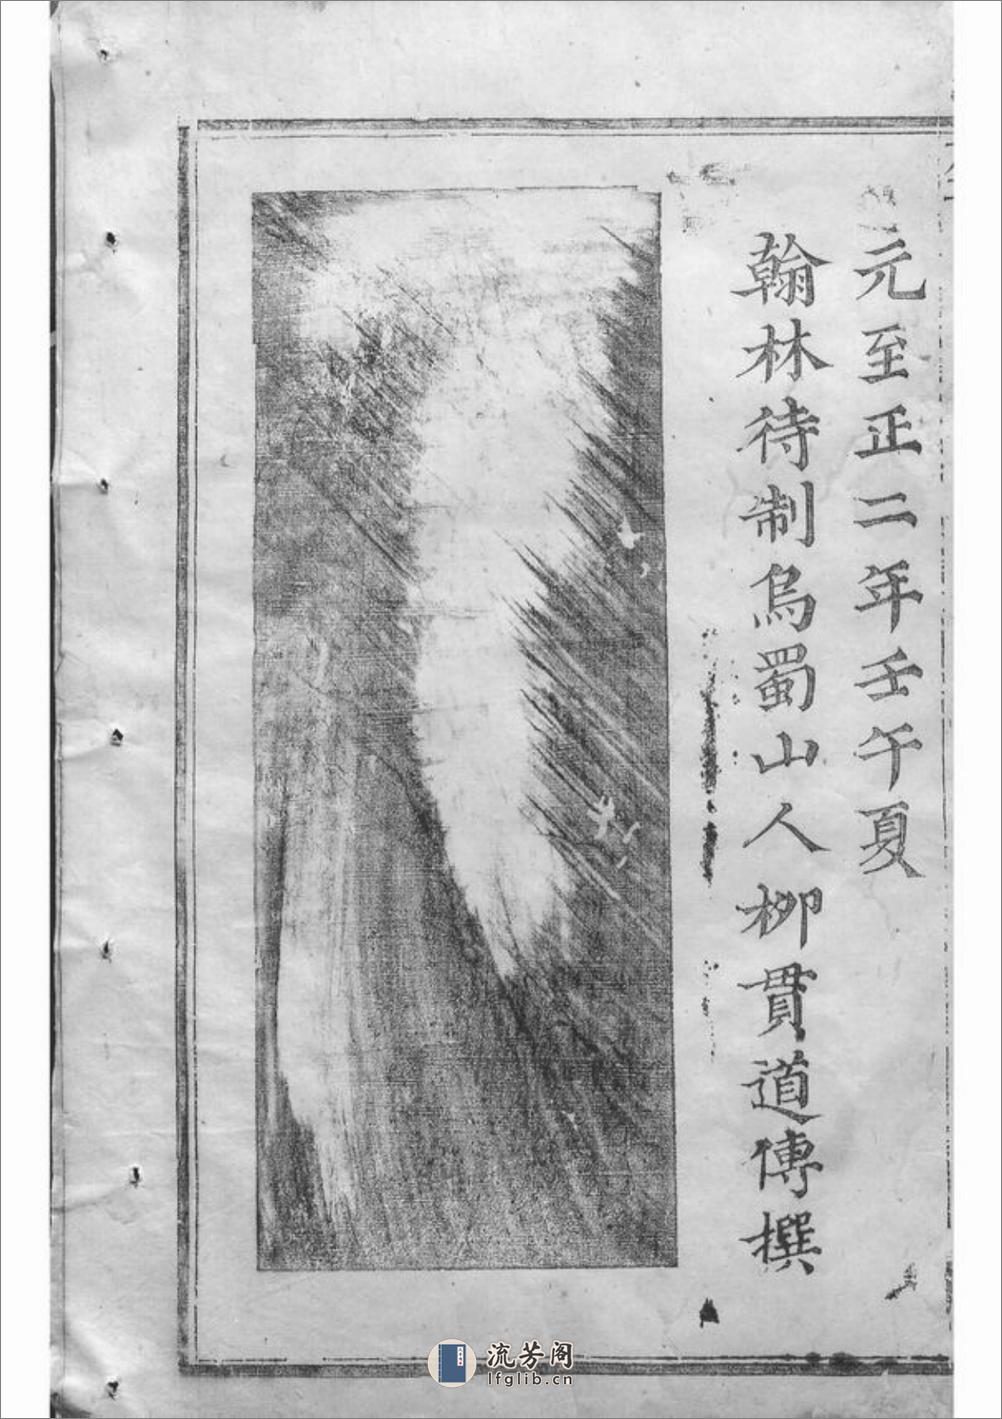 元至正二年壬午夏
翰林待制烏蜀山人柳貫道傳撰
流芳阁
lfglib.cn